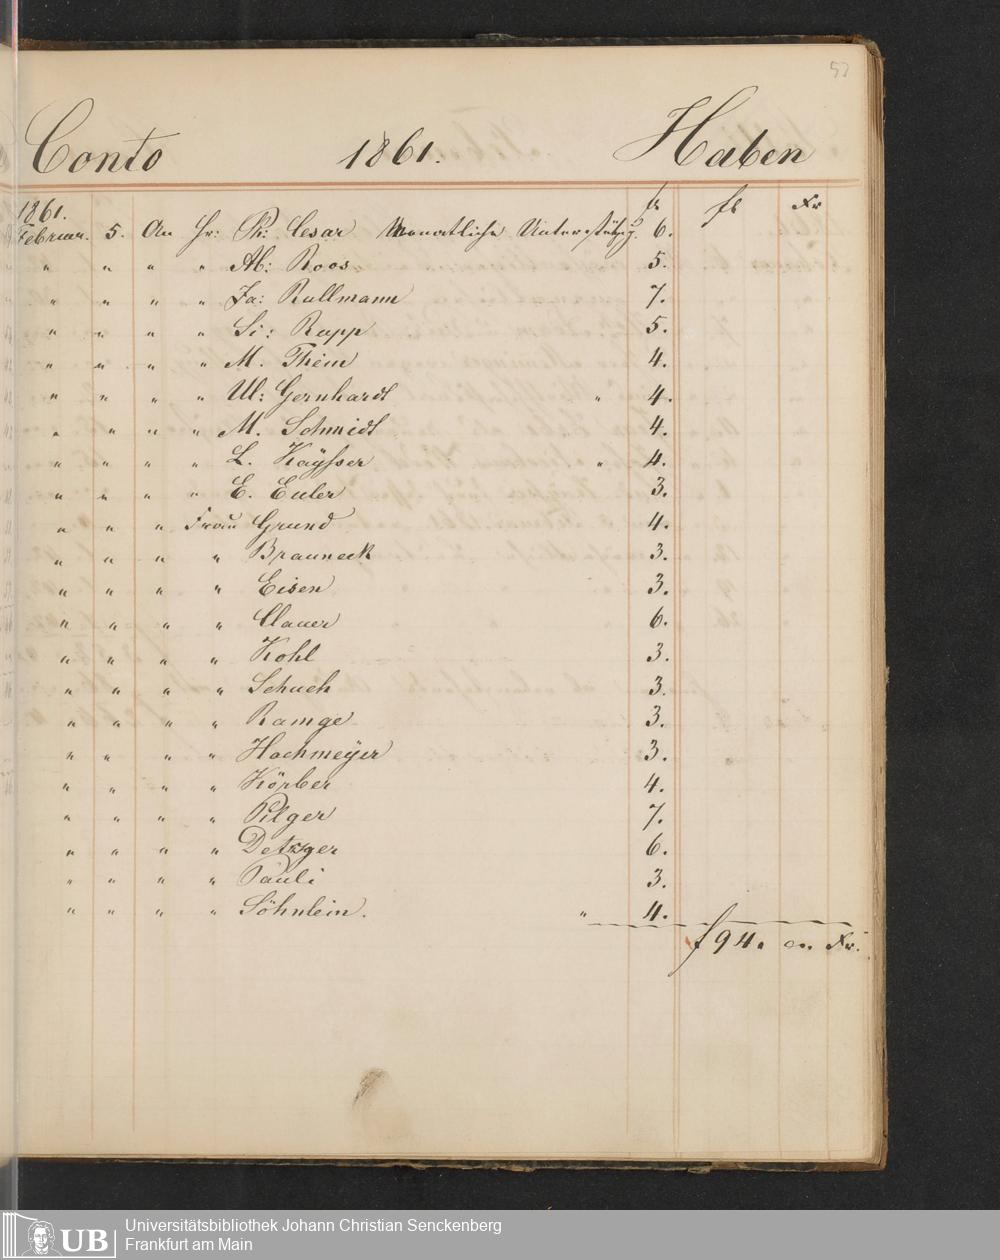 53
Conto 1861. Haben
1861. fl fl Xr
Februar. 5. An Hr: Ph: Cesar Monatliche Unterstützg. 6.
" " " " Ab: Roos 5.
" " " " Ja: Rullmann 7.
" " " " Si: Rapp 5.
" " " " M. Thein 4.
" " " " Ul: Gernhardt " 4.
" " " " M. Schmidt 4.
" " " " L. Kaÿsser " 4.
" " " " E. Euler 3.
" " " Frau Grund 4.
" " " " Brauneck 3.
" " " " Eisen 3.
" " " " Clauer 6.
" " " " Kohl 3.
" " " " Schuch 3.
" " " " Ramge 3.
" " " " Hachmeÿer 3.
" " " " Körber 4.
" " " " Pilger 7.
" " " " Detzger 6.
" " " " Pauli 3.
" " " " Söhnlein. " 4.
f 94. Xr.
UB Universitätsbibliothek Johann Christian Senckenberg
Frankfurt am Main